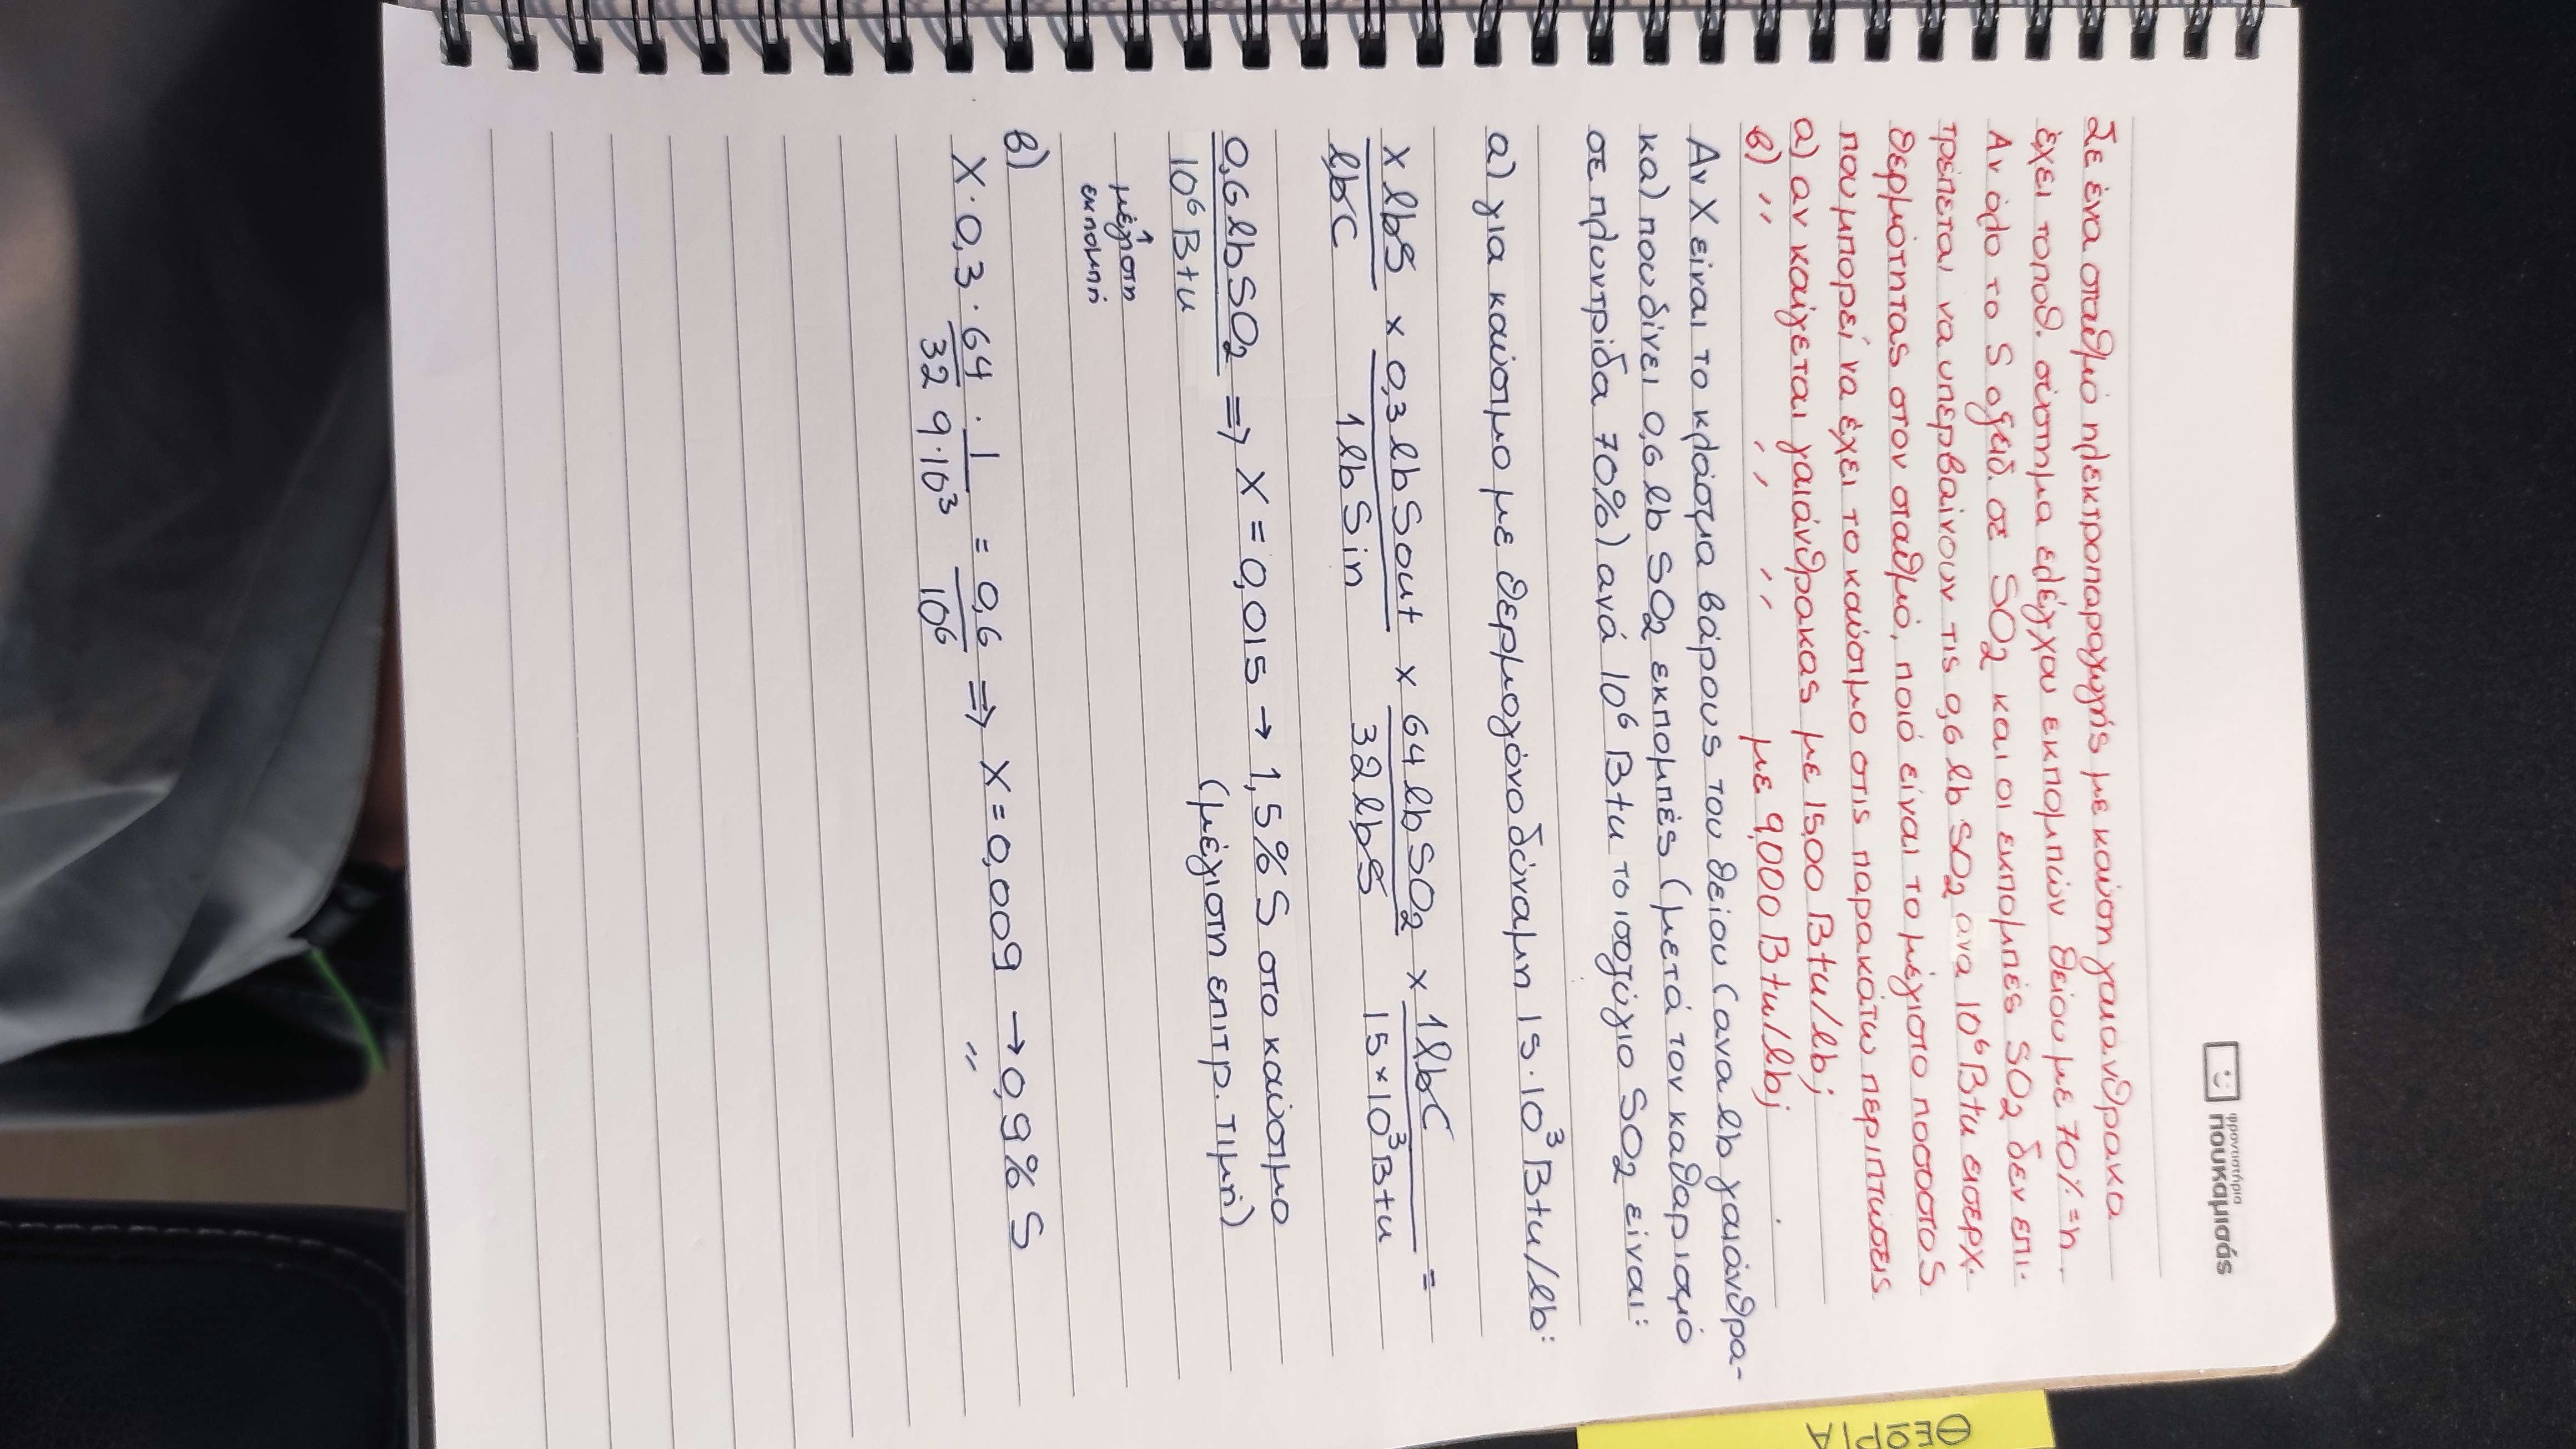 φροντιστήρια
πουκαμισάς
Σε ένα σταθμό ηλεκτροπαραγωγής με καύση γαιανθρακα
έχει τοποθ. σύστημα ελέγχου εκπομπών θείου με 70% = n.
Αν όλο το S οξειδ. σε SO2 και οι εκπομπές SO2 δεν επι-
τρέπεται να υπερβαίνουν τις 0,6 lb SO2 ανα 10⁶ Btu εισερχ.
θερμότητας στον σταθμό, ποιό είναι το μέγιστο ποσοστό S
που μπορεί να έχει το καύσιμο στις παρακάτω περιπτώσεις
α) αν καίγεται γαιάνθρακας με 15,00 Btu/lb;
β) ,, ,, ,, με 9,000 Btu/lb;
Αν Χ είναι το κλάσμα βάρους του θείου (ανα lb γαιάνθρα-
κα) που δίνει 0,6 lb SO2 εκπομπές (μετά τον καθαρισμό
σε πλυντρίδα 70%) ανά 10⁶ Btu το ισοζύγιο SO2 είναι:
α) για καύσιμο με θερμογόνο δύναμη 15·10³ Btu/lb:
x lbS/lbC × 0,3 lb Sout/1 lb Sin × 64 lb SO2/32 lbS × 1 lbC/15×10³ Btu =
0,6 lb SO2/10⁶ Btu ⇒ X = 0,015 → 1,5% S στο καύσιμο
(μέγιστη επιτρ. τιμή)
↑
μέγιστη
εκπομπή
β)
X · 0,3 · 64/32 · 1/9·10³ = 0,6/10⁶ ⇒ X = 0,009 → 0,9% S
,,
ΘΕΩΡΙΑ